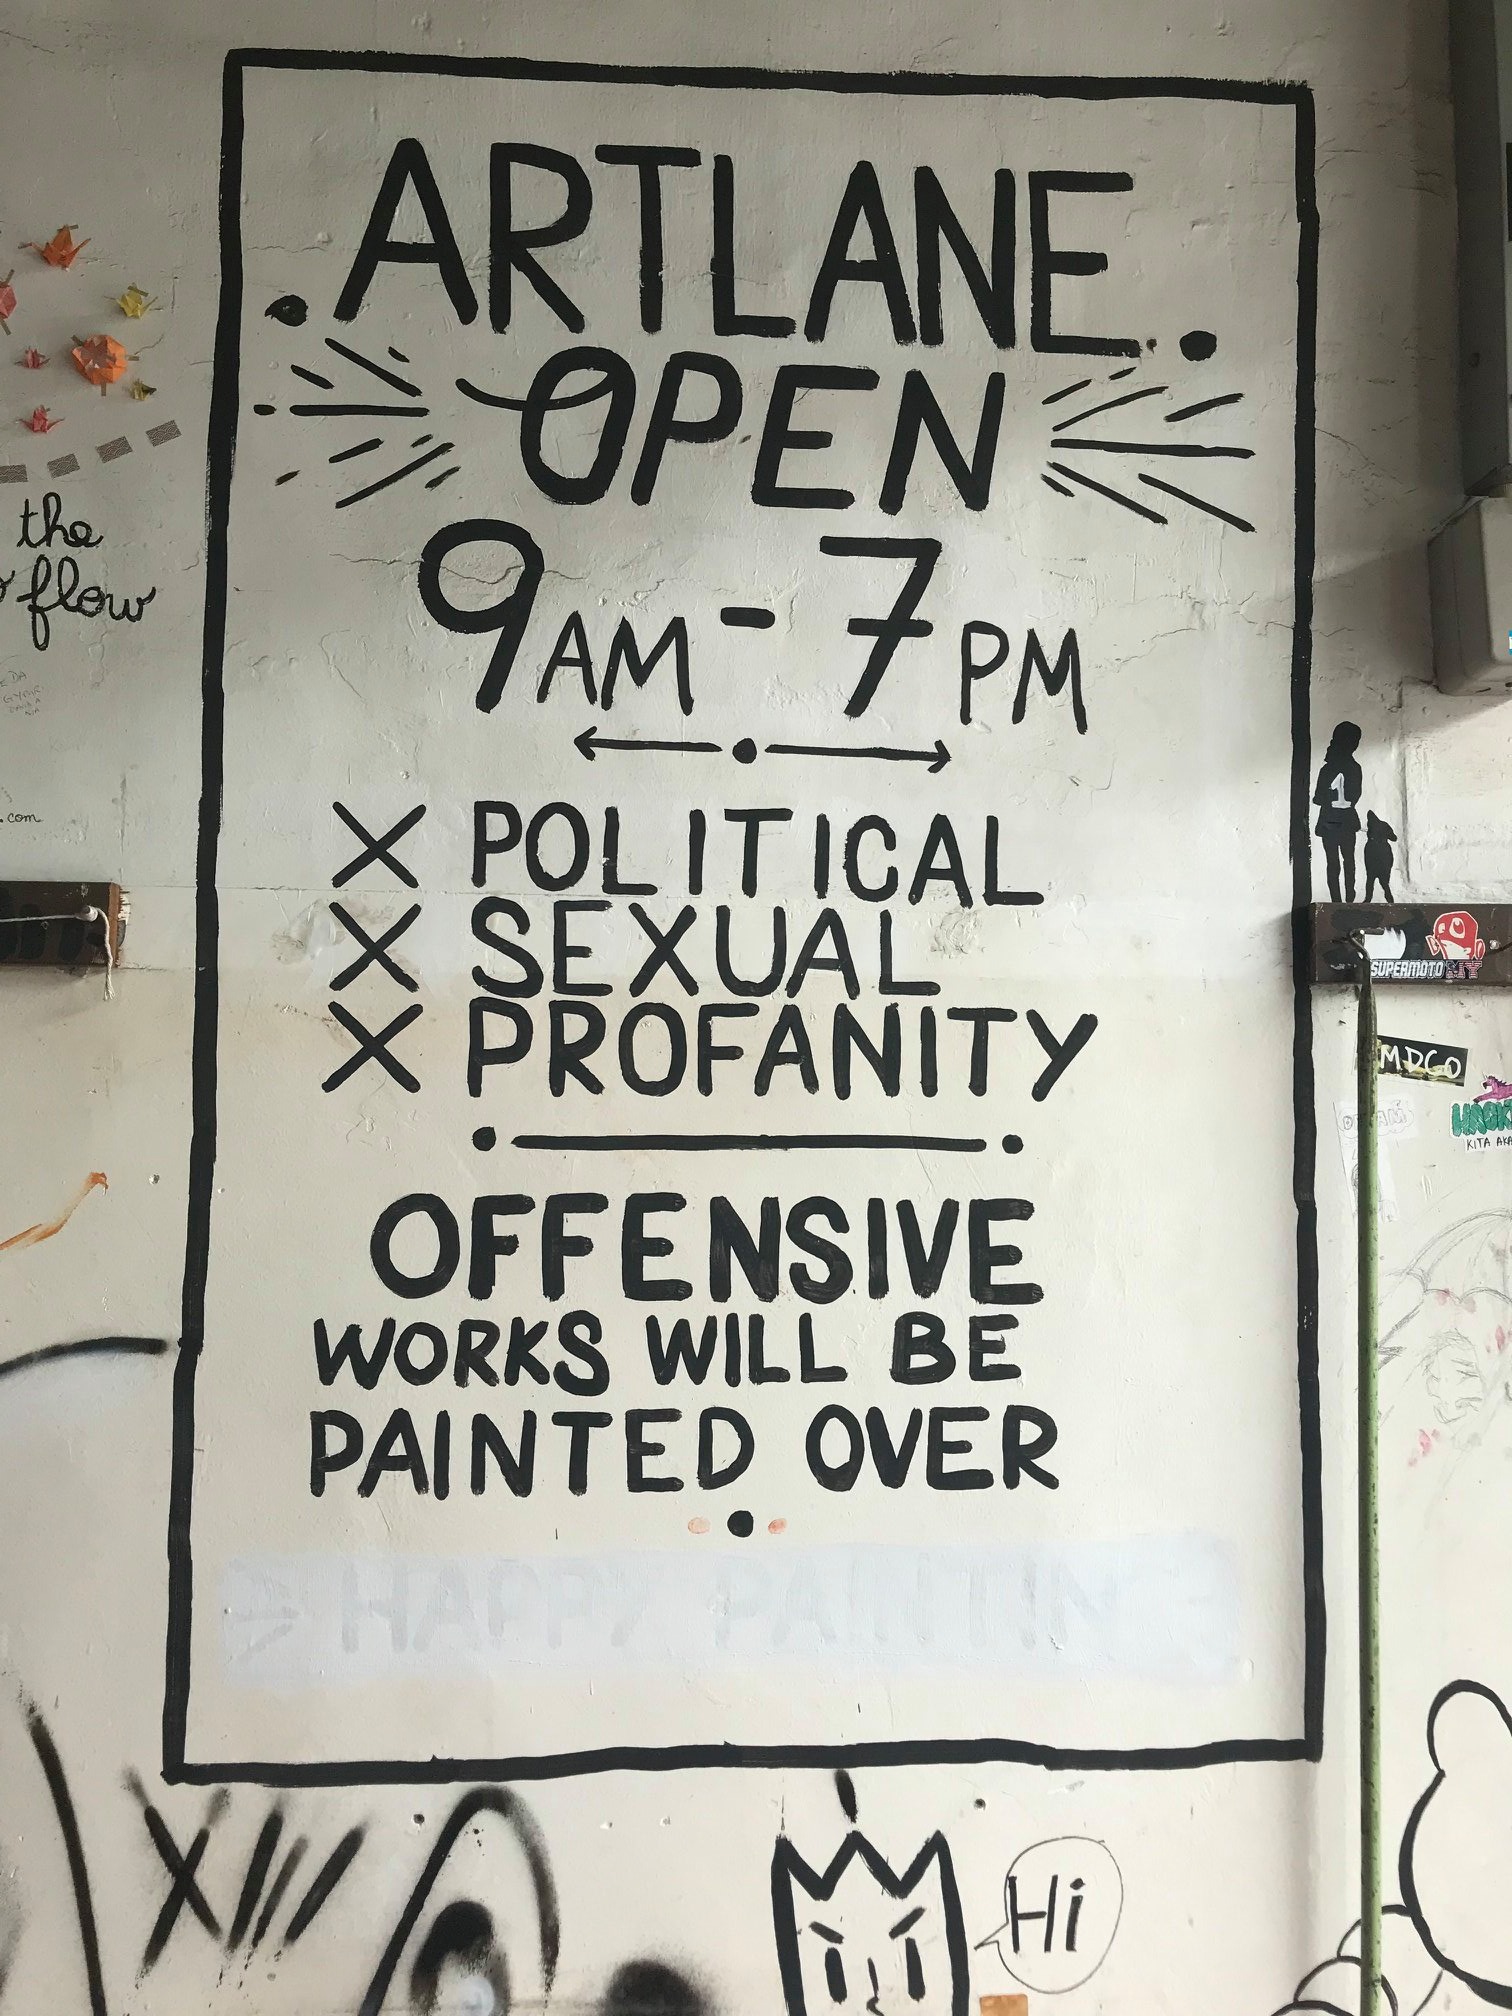 ARTLANE
OPEN
9AM - 7PM
X POLITICAL
X SEXUAL
X PROFANITY
OFFENSIVE
WORKS WILL BE
PAINTED OVER
HAPPY PAINTIN
the
flow
.com
1
SUPERMOTO MY
MDCO
KITA AKA
Hi